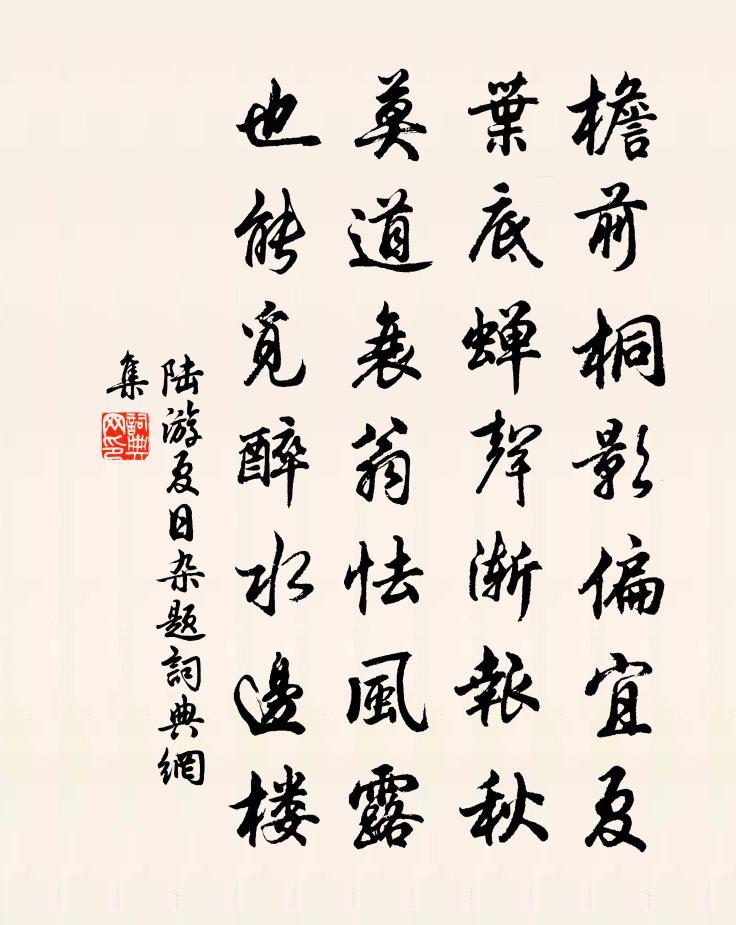 檐前桐影偏宜夏
葉底蟬聲漸報秋
莫道衰翁怯風露
也能覓醉水邊楼
陆游夏日杂题詞典網
集
詞典网印